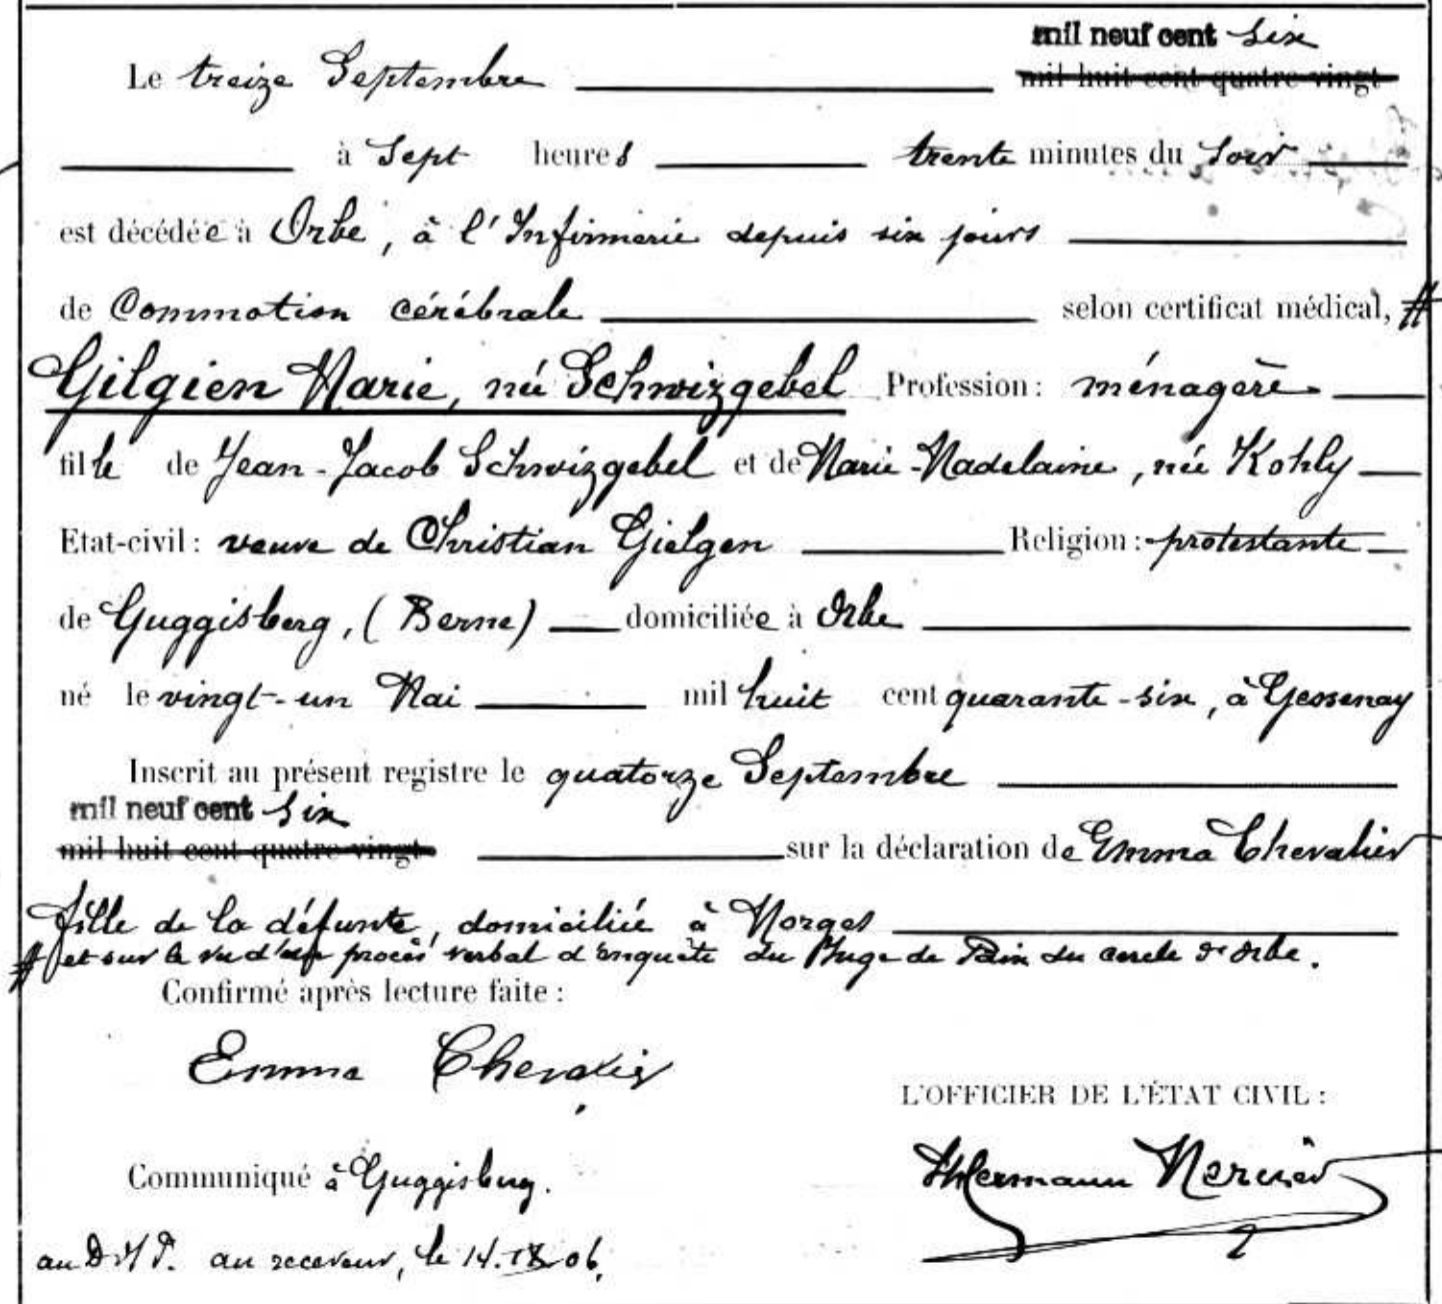 mil neuf cent six
Le treize Septembre mil huit cent quatre-vingt
à Sept heures trente minutes du Soir
est décédée à Orbe, à l'Infirmerie depuis six jours
de Commotion cérébrale selon certificat médical, #
Gilgien Marie, née Schwizgebel Profession: ménagère
fille de Jean-Jacob Schwizgebel et de Marie-Madelaine, née Kohly
Etat-civil: veuve de Christian Gielgen Religion: protestante
de Guggisberg, (Berne) domiciliée à Orbe
né le vingt-un Mai mil huit cent quarante-six, à Gessenay
Inscrit au présent registre le quatorze Septembre
mil neuf cent six
mil huit cent quatre-vingt sur la déclaration de Emma Chevalier
fille de la défunte, domiciliée à Morges
# et sur le vu d'un procès verbal d'enquête du Juge de Paix du cercle d'Orbe.
Confirmé après lecture faite:
Emma Chevalier
L'OFFICIER DE L'ÉTAT CIVIL:
Hermann Mercier
Communiqué à Guggisberg.
au receveur, le 14. IX 06.